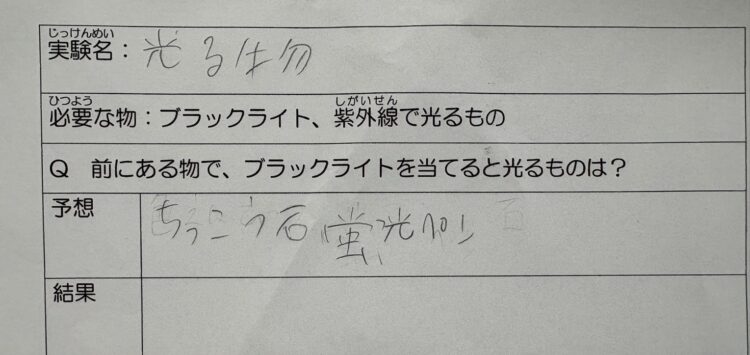 じっけんめい
実験名：光る物
ひつよう　しがいせん
必要な物：ブラックライト、紫外線で光るもの
Q　前にある物で、ブラックライトを当てると光るものは？
予想　ちっこう石 蛍光ペン
結果